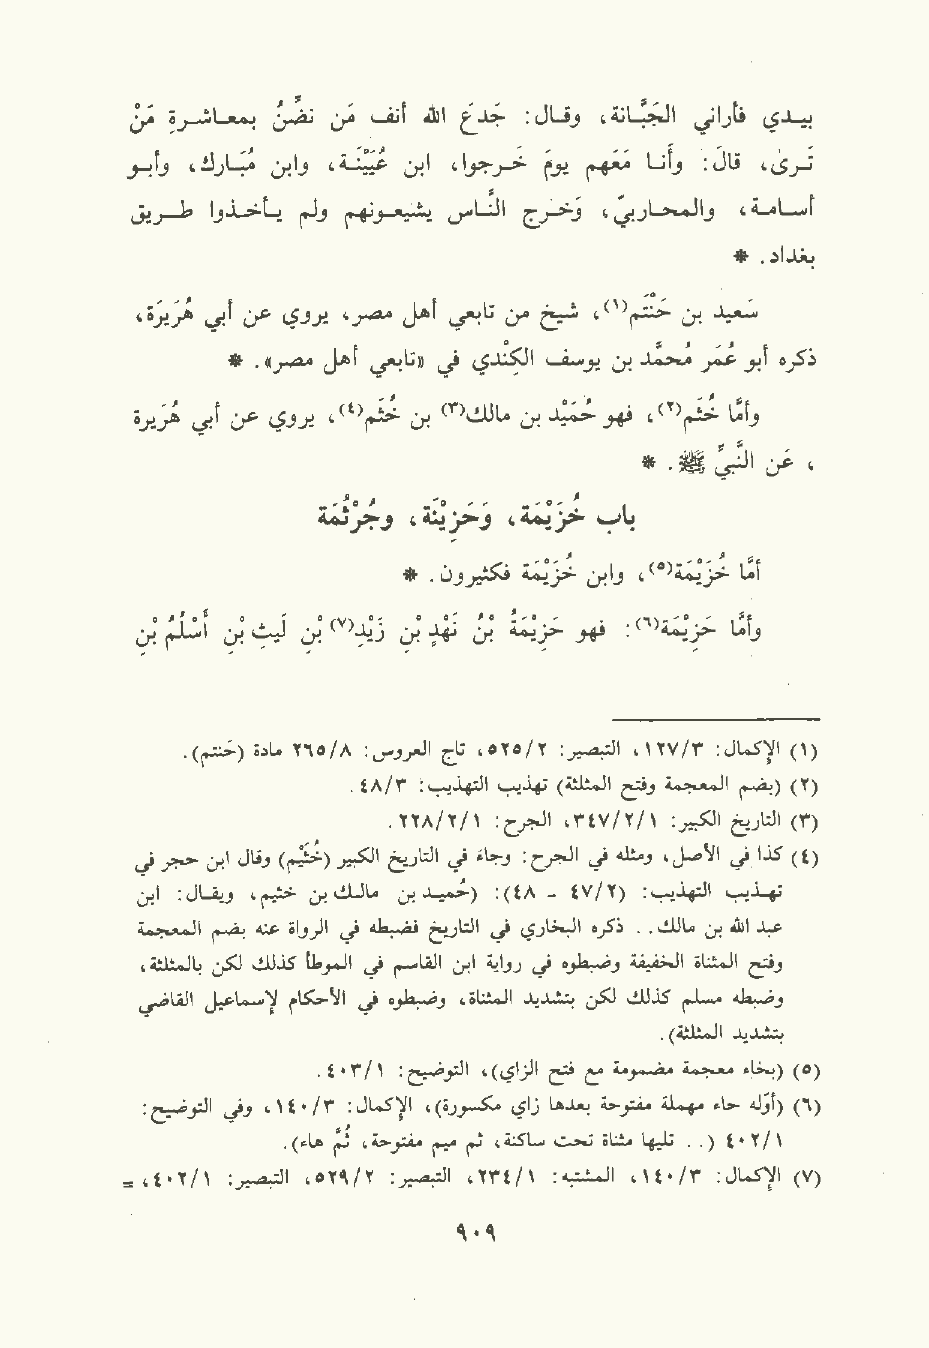 بيـدي فأراني الجَبَّـانة، وقـال: جَدعَ الله أنف مَن نصَّنُ بمعـاشـرةِ مَنْ
تَـرىٰ، قالَ: وأنـا مَعَهم يومَ خَـرجوا، ابن عُيَيْنـة، وابن مُبَـارك، وأبـو
أسـامـة، والمحـاربيّ، وَخـرج النَّـاس يشيعـونهم ولم يـأخـذوا طـريق
بغداد. *
سَعيد بن حَنْتَم(١)، شيخ من تابعي أهل مصر، يروي عن أبي هُرَيرَة،
ذكره أبو عُمَر مُحمَّد بن يوسف الكِنْدي في «تابعي أهل مصر». *
وأمَّا خُثَم(٢)، فهو حُمَيْد بن مالك(٣) بن خُثَم(٤)، يروي عن أبي هُرَيرة
، عَن النَّبيِّ ﷺ. *
باب خُزَيْمَة، وَحَزِيْنَة، وجُرْثُمَة
أمَّا خُزَيْمَة(٥)، وابن خُزَيْمَة فكثيرون. *
وأمَّا حَزِيْمَة(٦): فهو حَزِيْمَةُ بْنُ نَهْدِ بْنِ زَيْدِ(٧) بْنِ لَيثِ بْنِ أَسْلُمِ بْنِ
(١) الإكمال: ١٢٧/٣، التبصير: ٥٢٥/٢، تاج العروس: ٢٦٥/٨ مادة (حَنتم).
(٢) (بضم المعجمة وفتح المثلثة) تهذيب التهذيب: ٤٨/٣.
(٣) التاريخ الكبير: ٣٤٧/٢/١، الجرح: ٢٢٨/٢/١.
(٤) كذا في الأصل، ومثله في الجرح: وجاء في التاريخ الكبير (خُثَيْم) وقال ابن حجر في
تهـذيب التهذيب: (٤٧/٢ - ٤٨): (حُميـد بن مالـك بن خثيم، ويقـال: ابن
عبد الله بن مالك.. ذكره البخاري في التاريخ فضبطه في الرواة عنه بضم المعجمة
وفتح المثناة الخفيفة وضبطوه في رواية ابن القاسم في الموطأ كذلك لكن بالمثلثة،
وضبطه مسلم كذلك لكن بتشديد المثناة، وضبطوه في الأحكام لإسماعيل القاضي
بتشديد المثلثة).
(٥) (بخاء معجمة مضمومة مع فتح الزاي)، التوضيح: ٤٠٣/١.
(٦) (أوَّله حاء مهملة مفتوحة بعدها زاي مكسورة)، الإكمال: ١٤٠/٣، وفي التوضيح:
٤٠٢/١ (.. تليها مثناة تحت ساكنة، ثم ميم مفتوحة، ثُمَّ هاء).
(٧) الإكمال: ١٤٠/٣، المشتبه: ٢٣٤/١، التبصير: ٥٢٩/٢، التبصير: ٤٠٢/١، =
٩٠٩